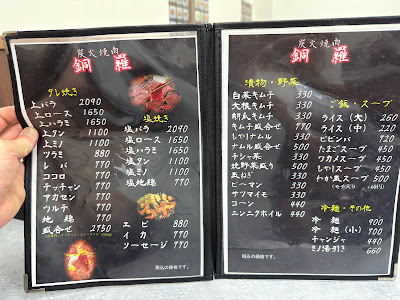 炭火焼肉
銅羅
タレ焼き
上バラ 2090
上ロース 1650
上ハラミ 1650
上タン 1100
上ミノ 1100
ツラミ 880
レバ 770
ココロ 770
テッチャン 770
アカセン 770
ウルテ 770
地鶏 770
盛合せ 2750
塩焼き
塩バラ 2090
塩ロース 1650
塩ハラミ 1650
塩タン 1100
塩ミノ 1100
塩地鶏 770
エビ 880
イカ 770
ソーセージ 770
税込の価格です。
炭火焼肉
銅羅
漬物・野菜
白菜キムチ 330
大根キムチ 330
胡瓜キムチ 330
キムチ盛合せ 770
もやしナムル 330
ナムル盛合せ 500
チシャ菜 330
焼野菜盛り 500
玉ねぎ 330
ピーマン 330
サツマイモ 330
コーン 440
ニンニクホイル 440
ご飯・スープ
ライス(大) 260
ライス(中) 220
ビビンバ 770
たまごスープ 450
ワカメスープ 450
もやしスープ 450
わか玉スープ 500
冷麺・その他
冷麺 900
冷麺(小) 700
チャンジャ 440
ミノ湯引き 660
税込の価格です。